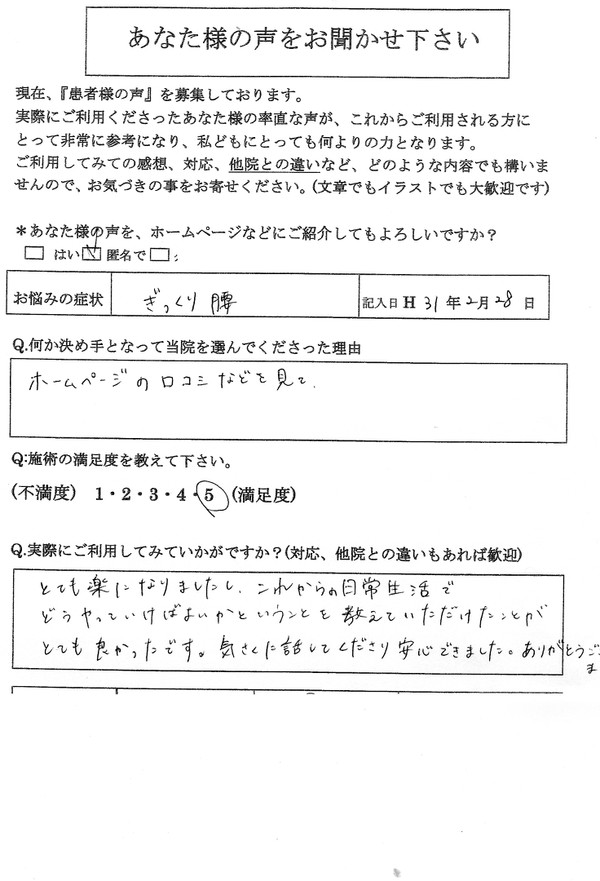 あなた様の声をお聞かせ下さい
現在、『患者様の声』を募集しております。
実際にご利用くださったあなた様の率直な声が、これからご利用される方に
とって非常に参考になり、私どもにとっても何よりの力となります。
ご利用してみての感想、対応、他院との違いなど、どのような内容でも構いま
せんので、お気づきの事をお寄せください。(文章でもイラストでも大歓迎です)
＊あなた様の声を、ホームページなどにご紹介してもよろしいですか？
□ はい □ 匿名で □ :
お悩みの症状 ぎっくり腰 記入日 H 31 年 2 月 28 日
Q.何か決め手となって当院を選んでくださった理由
ホームページの口コミなどを見て.
Q:施術の満足度を教えて下さい。
(不満度) 1・2・3・4・5 (満足度)
Q.実際にご利用してみていかがですか？(対応、他院との違いもあれば歓迎)
とても楽になりましたし、これからの日常生活で
どうやっていけばよいかということを教えていただけたことが
とても良かったです。気さくに話してくださり安心できました。ありがとうご
ま